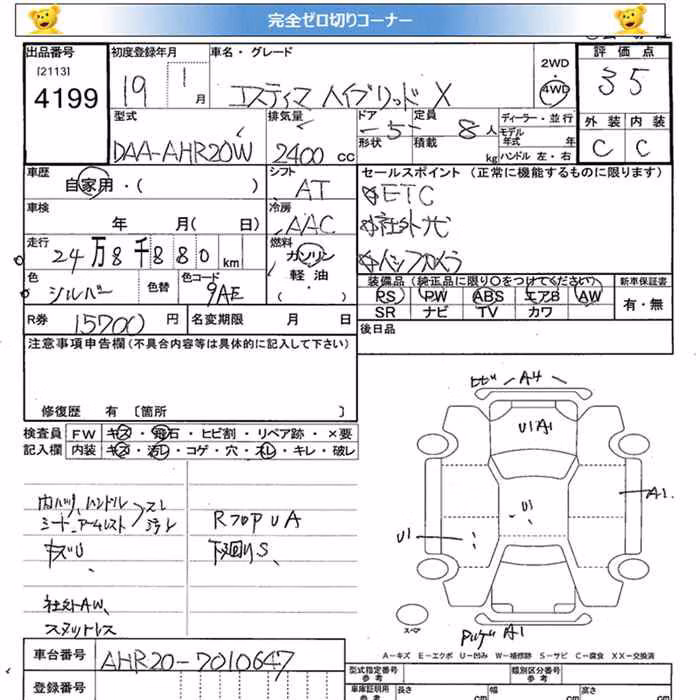 完全ゼロ切りコーナー
出品番号 初度登録年月 車名・グレード 2WD 4WD 評価点
[2113]
4199 19 1月 エスティマ ハイブリッド X 35
型式 排気量 ドア 定員 ディーラー・並行 外装 内装
DAA-AHR20W 2400cc -5- 8人 モデル年式 年 C C
形状 積載 kg ハンドル 左・右
車歴 シフト セールスポイント (正常に機能するものに限ります)
自家用・( ) AT ☆ETC
車検 冷房 ☆社外ナビ
年 月(日) AAC
走行 燃料
24万8千880km ガソリン
色 色替 色コード 軽油 装備品 (純正品に限り〇をつけてください) 新車保証書
シルバー 9AE ( ・ ) PS PW ABS エアB AW 有・無
SR ナビ TV カワ
R券 15700円 名変期限 月 日 後日品
注意事項申告欄(不具合内容等は具体的に記入して下さい)
修復歴 有 [箇所 ]
検査員 FW キズ・飛石・ヒビ割・リペア跡・×要
記入欄 内装 キズ・汚レ・コゲ・穴・スレ・キレ・破レ
ヒビ A4
U1 A1
U1
U1
A1
A1
内ハリ、ハンドル スレ
シート、アームレスト ヨゴレ RフロアUA
キズU 下廻りS
社外AW、
スタットレス
スペア
A-キズ E-エクボ U-凹み W-補修跡 S-サビ C-腐食 XX-交換済
車台番号 AHR20-7010647 型式指定番号 類別区分番号
参考 参考
登録番号 車庫証明用 長さ 幅 高さ
参考 cm cm cm